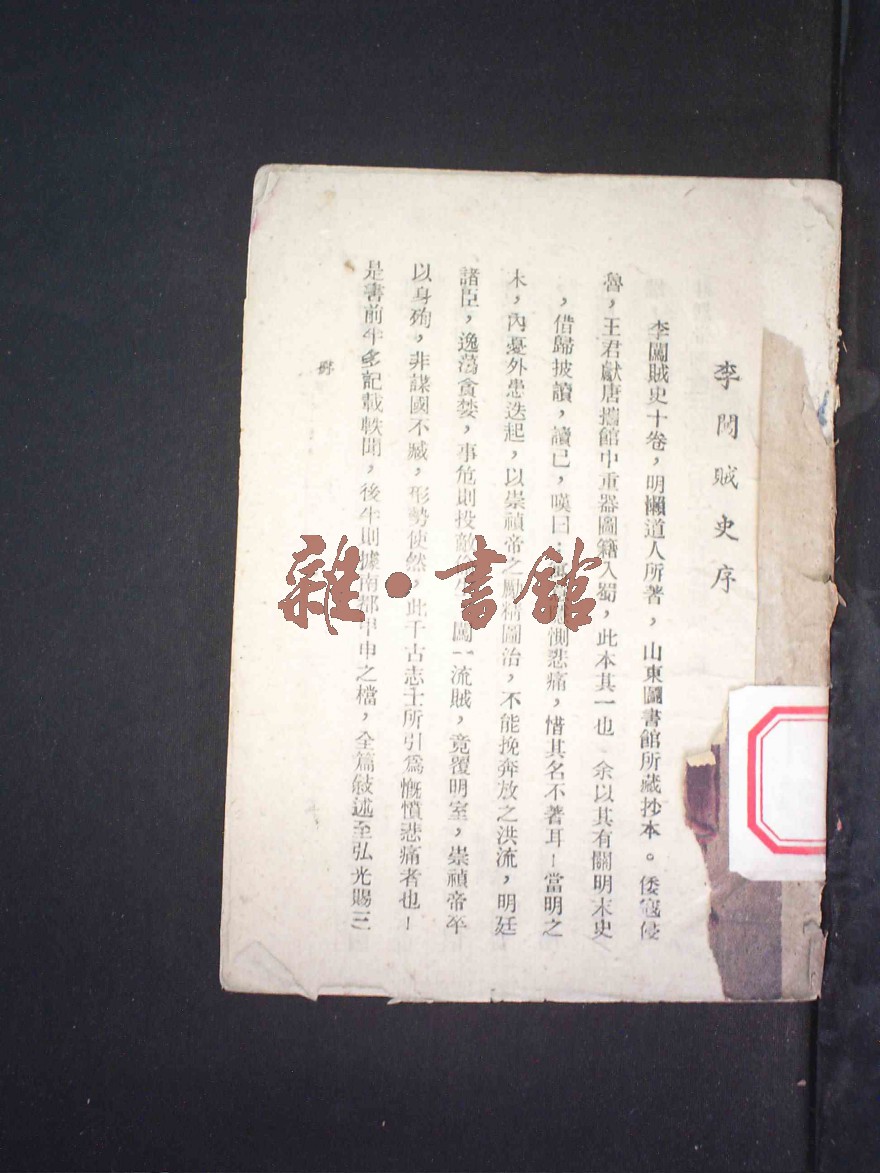 李闖賊史序
李闖賊史十卷，明懶道人所著，山東圖書館所藏抄本。倭寇侵
魯，王君獻唐攜館中重器圖籍入蜀，此本其一也 余以其有關明末史
，借歸披讀，讀已，嘆曰：惻悲痛，惜其名不著耳！當明之
末，內憂外患迭起，以崇禎帝之勵精圖治，不能挽奔放之洪流，明廷
諸臣，逸蕩貪婪，事危則投敵闖一流賊，竟覆明室，崇禎帝卒
以身殉，非謀國不臧，形勢使然，此千古志士所引爲慨憤悲痛者也！
是書前半多記載軼聞，後半則據南都甲申之檔，全篇敍述至弘光賜三
雜·書館